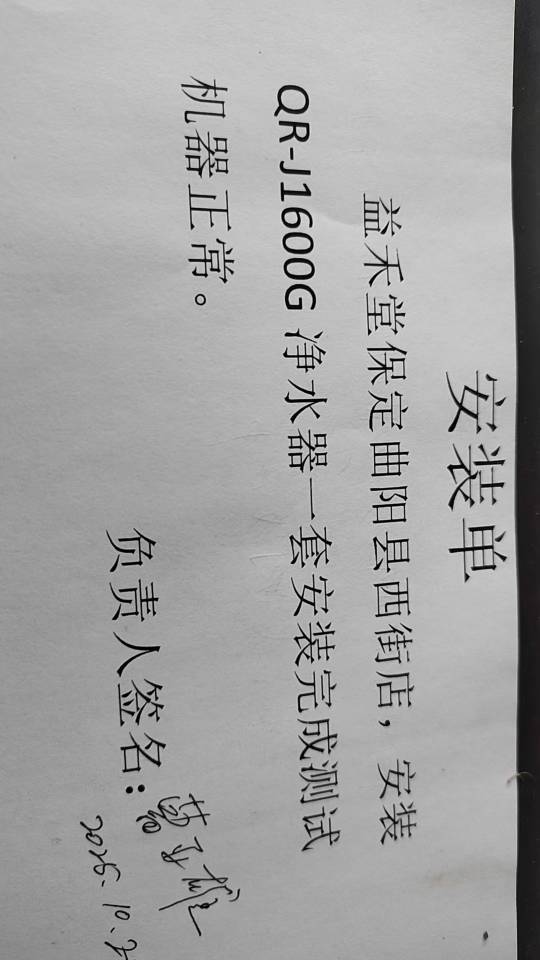 安装单
益禾堂保定曲阳县西街店，安装
QR-J1600G 净水器一套安装完成测试
机器正常。
负责人签名：
2025.10.